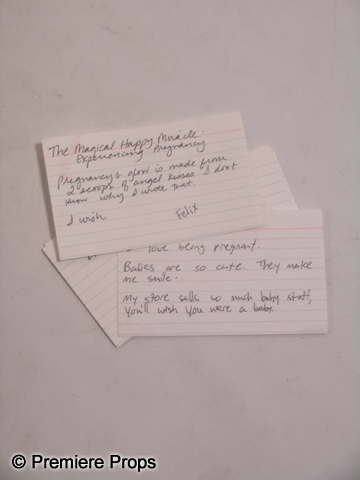 The Magical Happy Miracle:
Experiencing Pregnancy
Pregnancy's glow is made from
2 scoops of angel kisses I don't
know why I wrote that.
I wish
Felix
love being pregnant.
Babies are so cute. They make
me smile.
My store sells so much baby stuff,
You'll wish you were a baby.
© Premiere Props